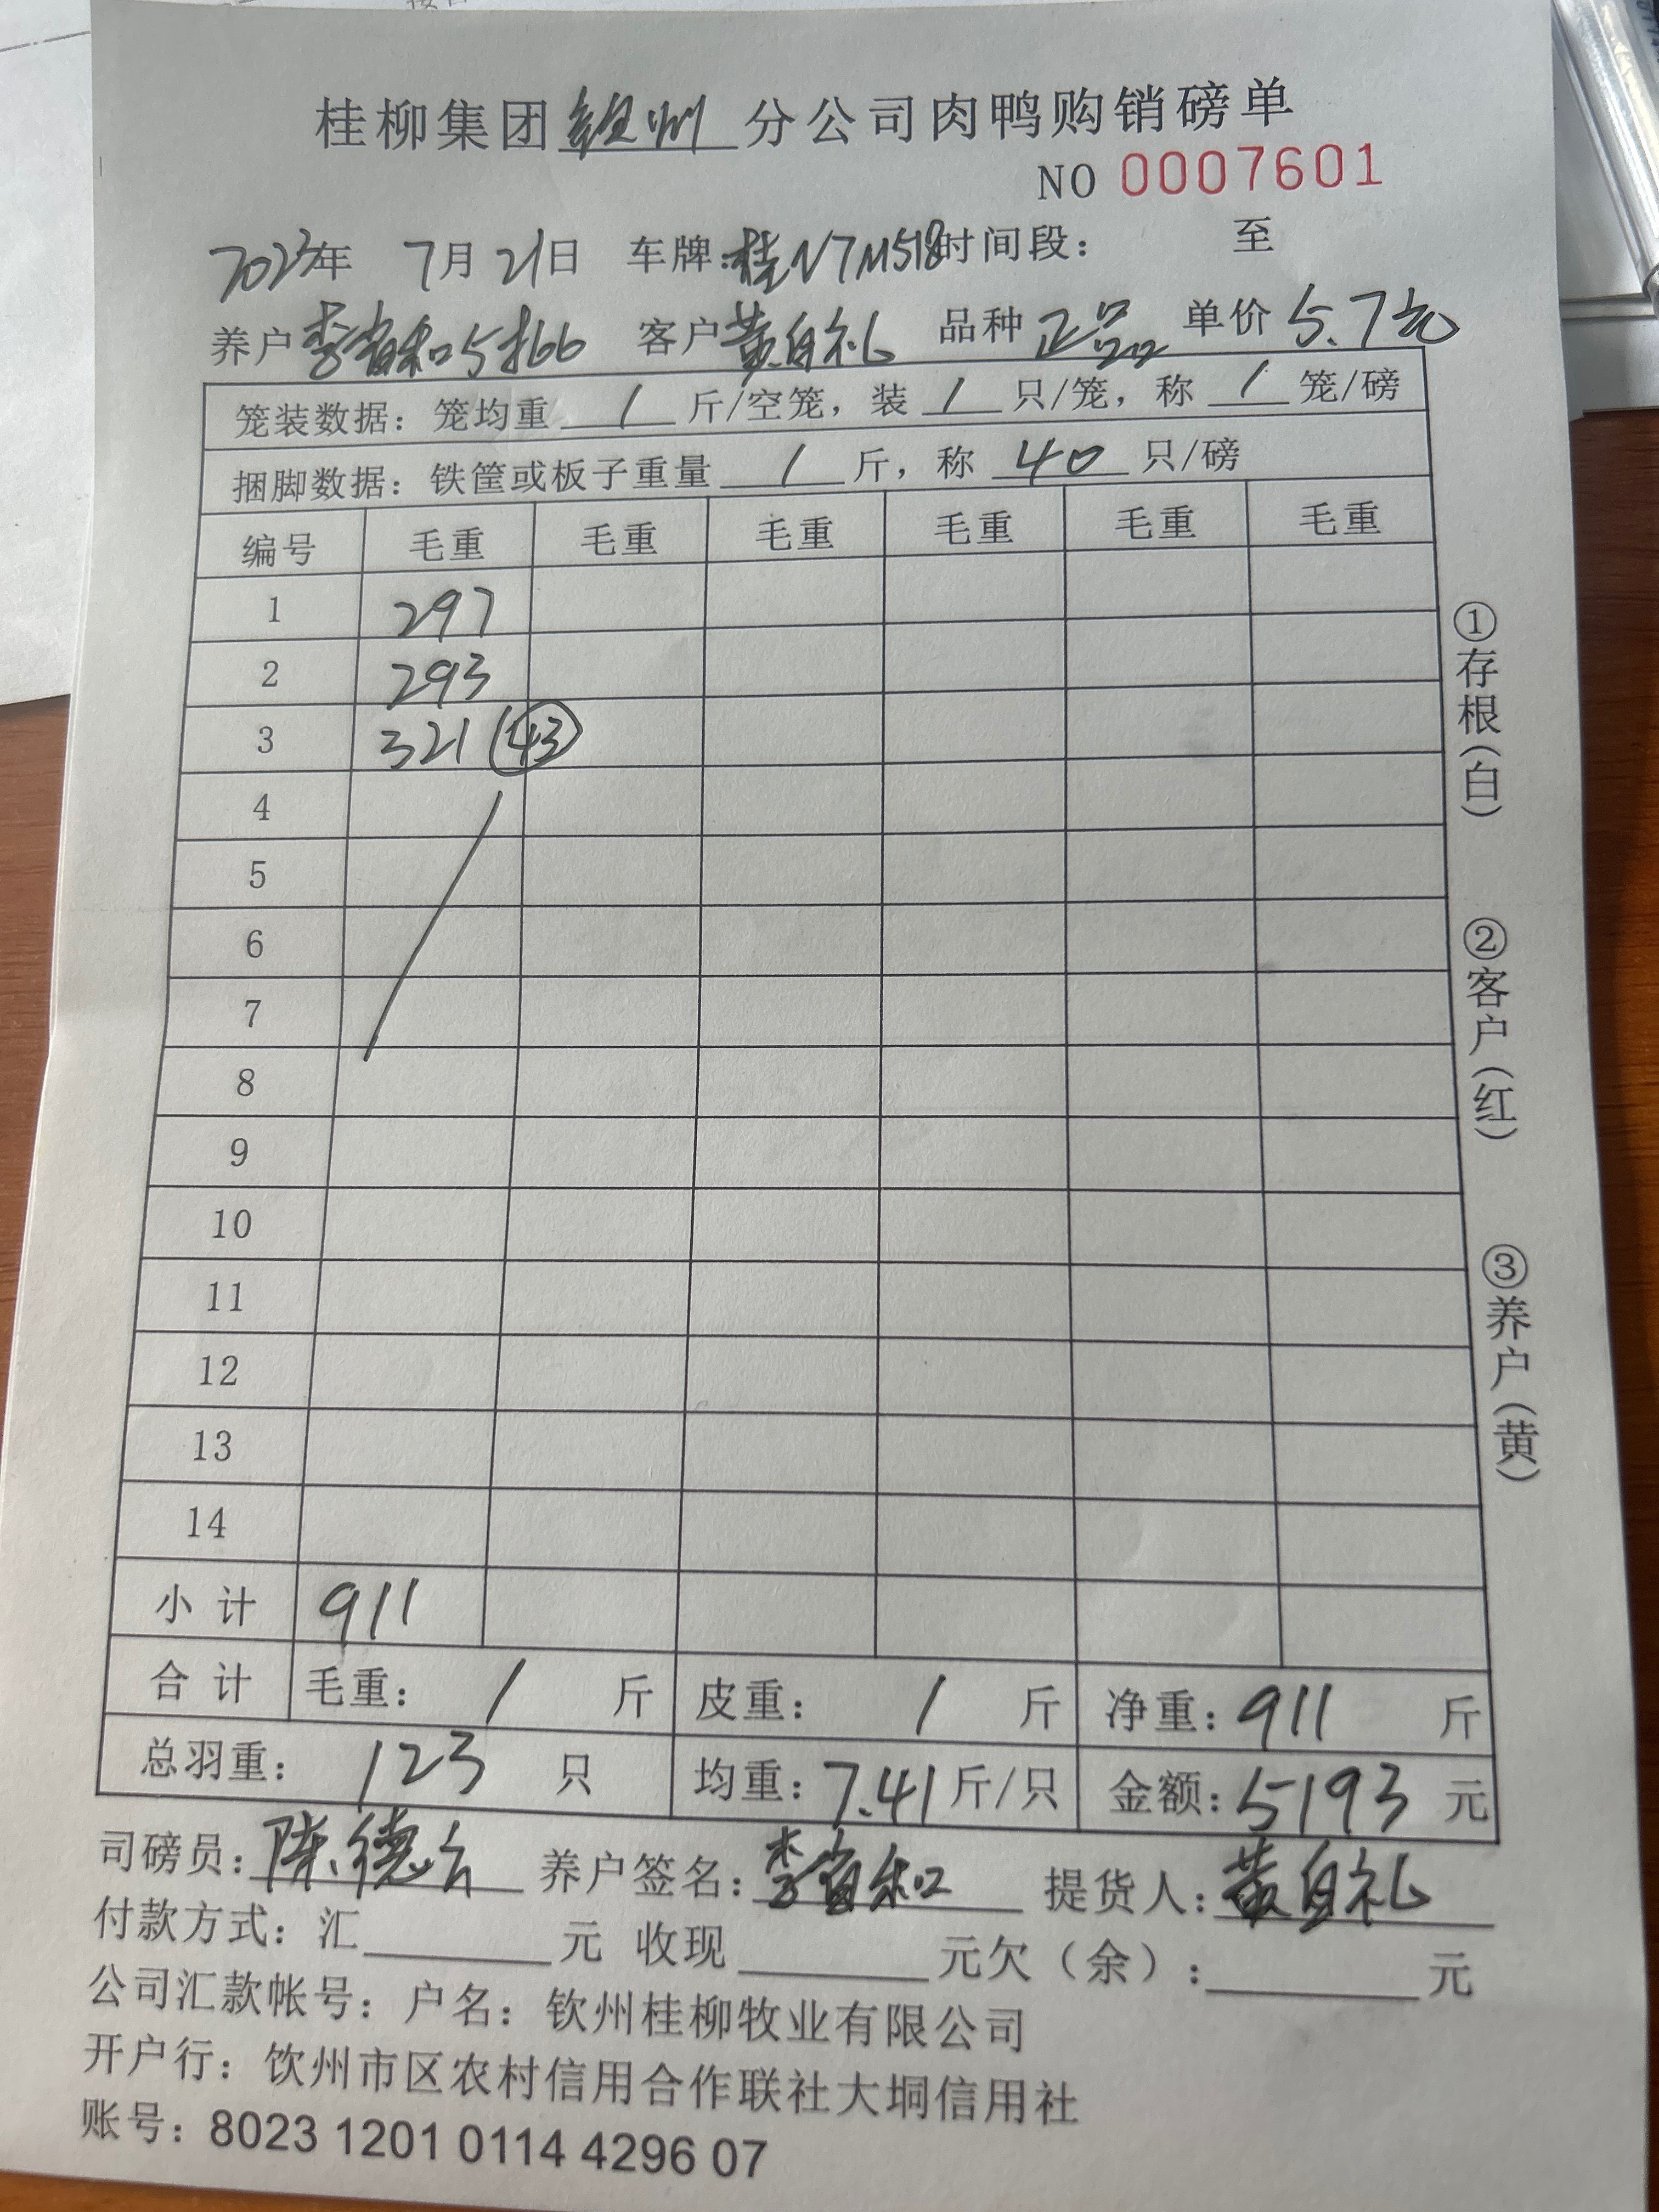 桂柳集团钦州分公司肉鸭购销磅单
NO 0007601
2023年 7月21日 车牌:桂N7M518时间段: 至
养户李省和5批66 客户黄自礼 品种正品 单价5.7元
笼装数据: 笼均重 / 斤/空笼, 装 / 只/笼, 称 / 笼/磅
捆脚数据: 铁筐或板子重量 / 斤, 称 40 只/磅
编号 毛重 毛重 毛重 毛重 毛重 毛重
1 297
2 293
3 321 (43)
4
5
6
7
8
9
10
11
12
13
14
小计 911
合计 毛重: / 斤 皮重: / 斤 净重: 911 斤
总羽重: 123 只 均重: 7.41斤/只 金额: 5193 元
司磅员: 陈德 养户签名: 李省和 提货人: 黄自礼
付款方式: 汇 元 收现 元欠(余): 元
公司汇款帐号: 户名: 钦州桂柳牧业有限公司
开户行: 饮州市区农村信用合作联社大垌信用社
账号: 8023 1201 0114 4296 07
①存根(白)
②客户(红)
③养户(黄)